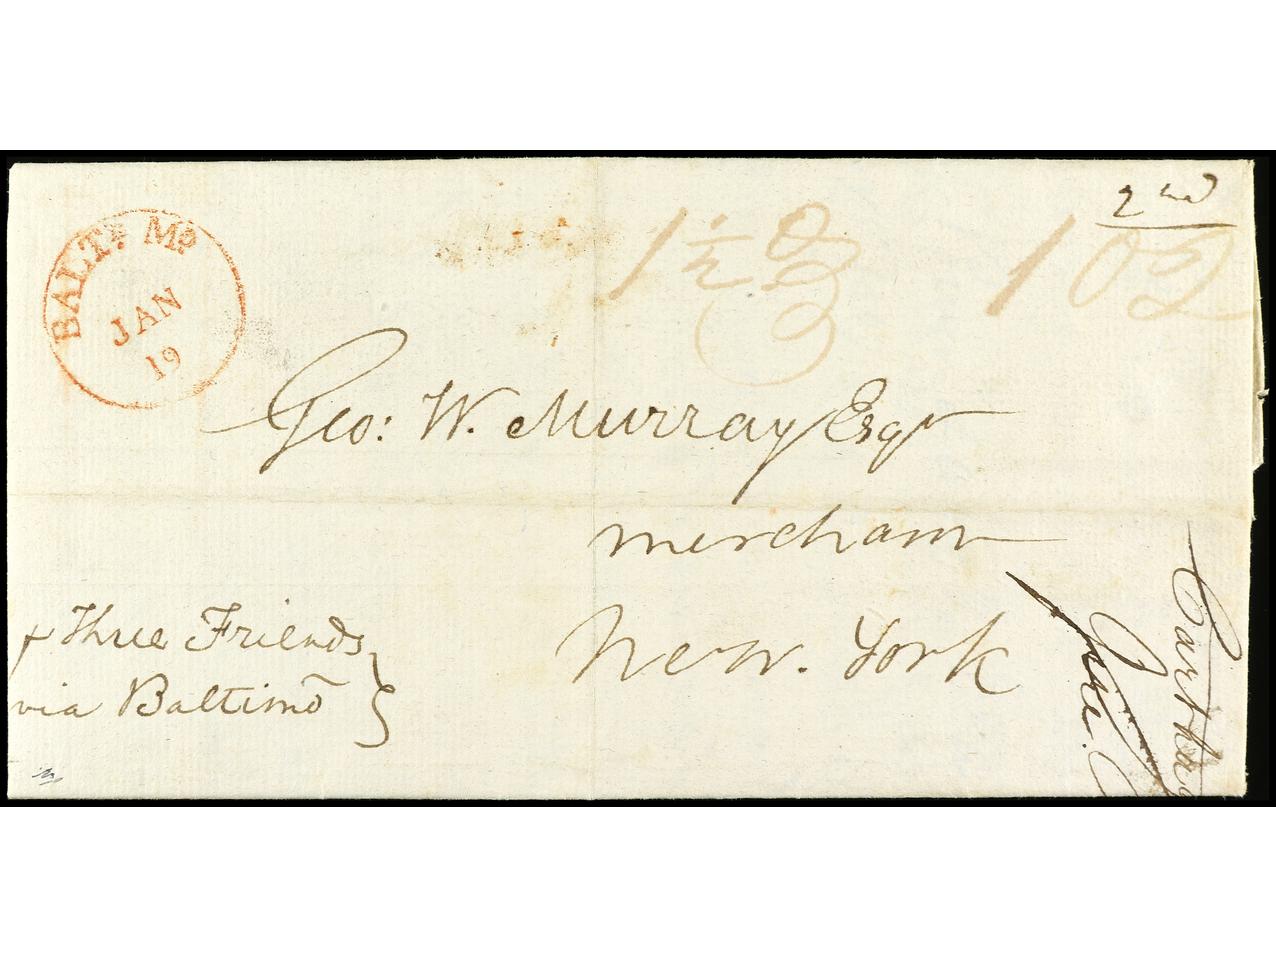 2nd
BALTe. MD.
JAN
19
1 1/2 oz
102
Geo: W. Murray Esqr
merchant
New. York
p Three Friends
via Baltimo